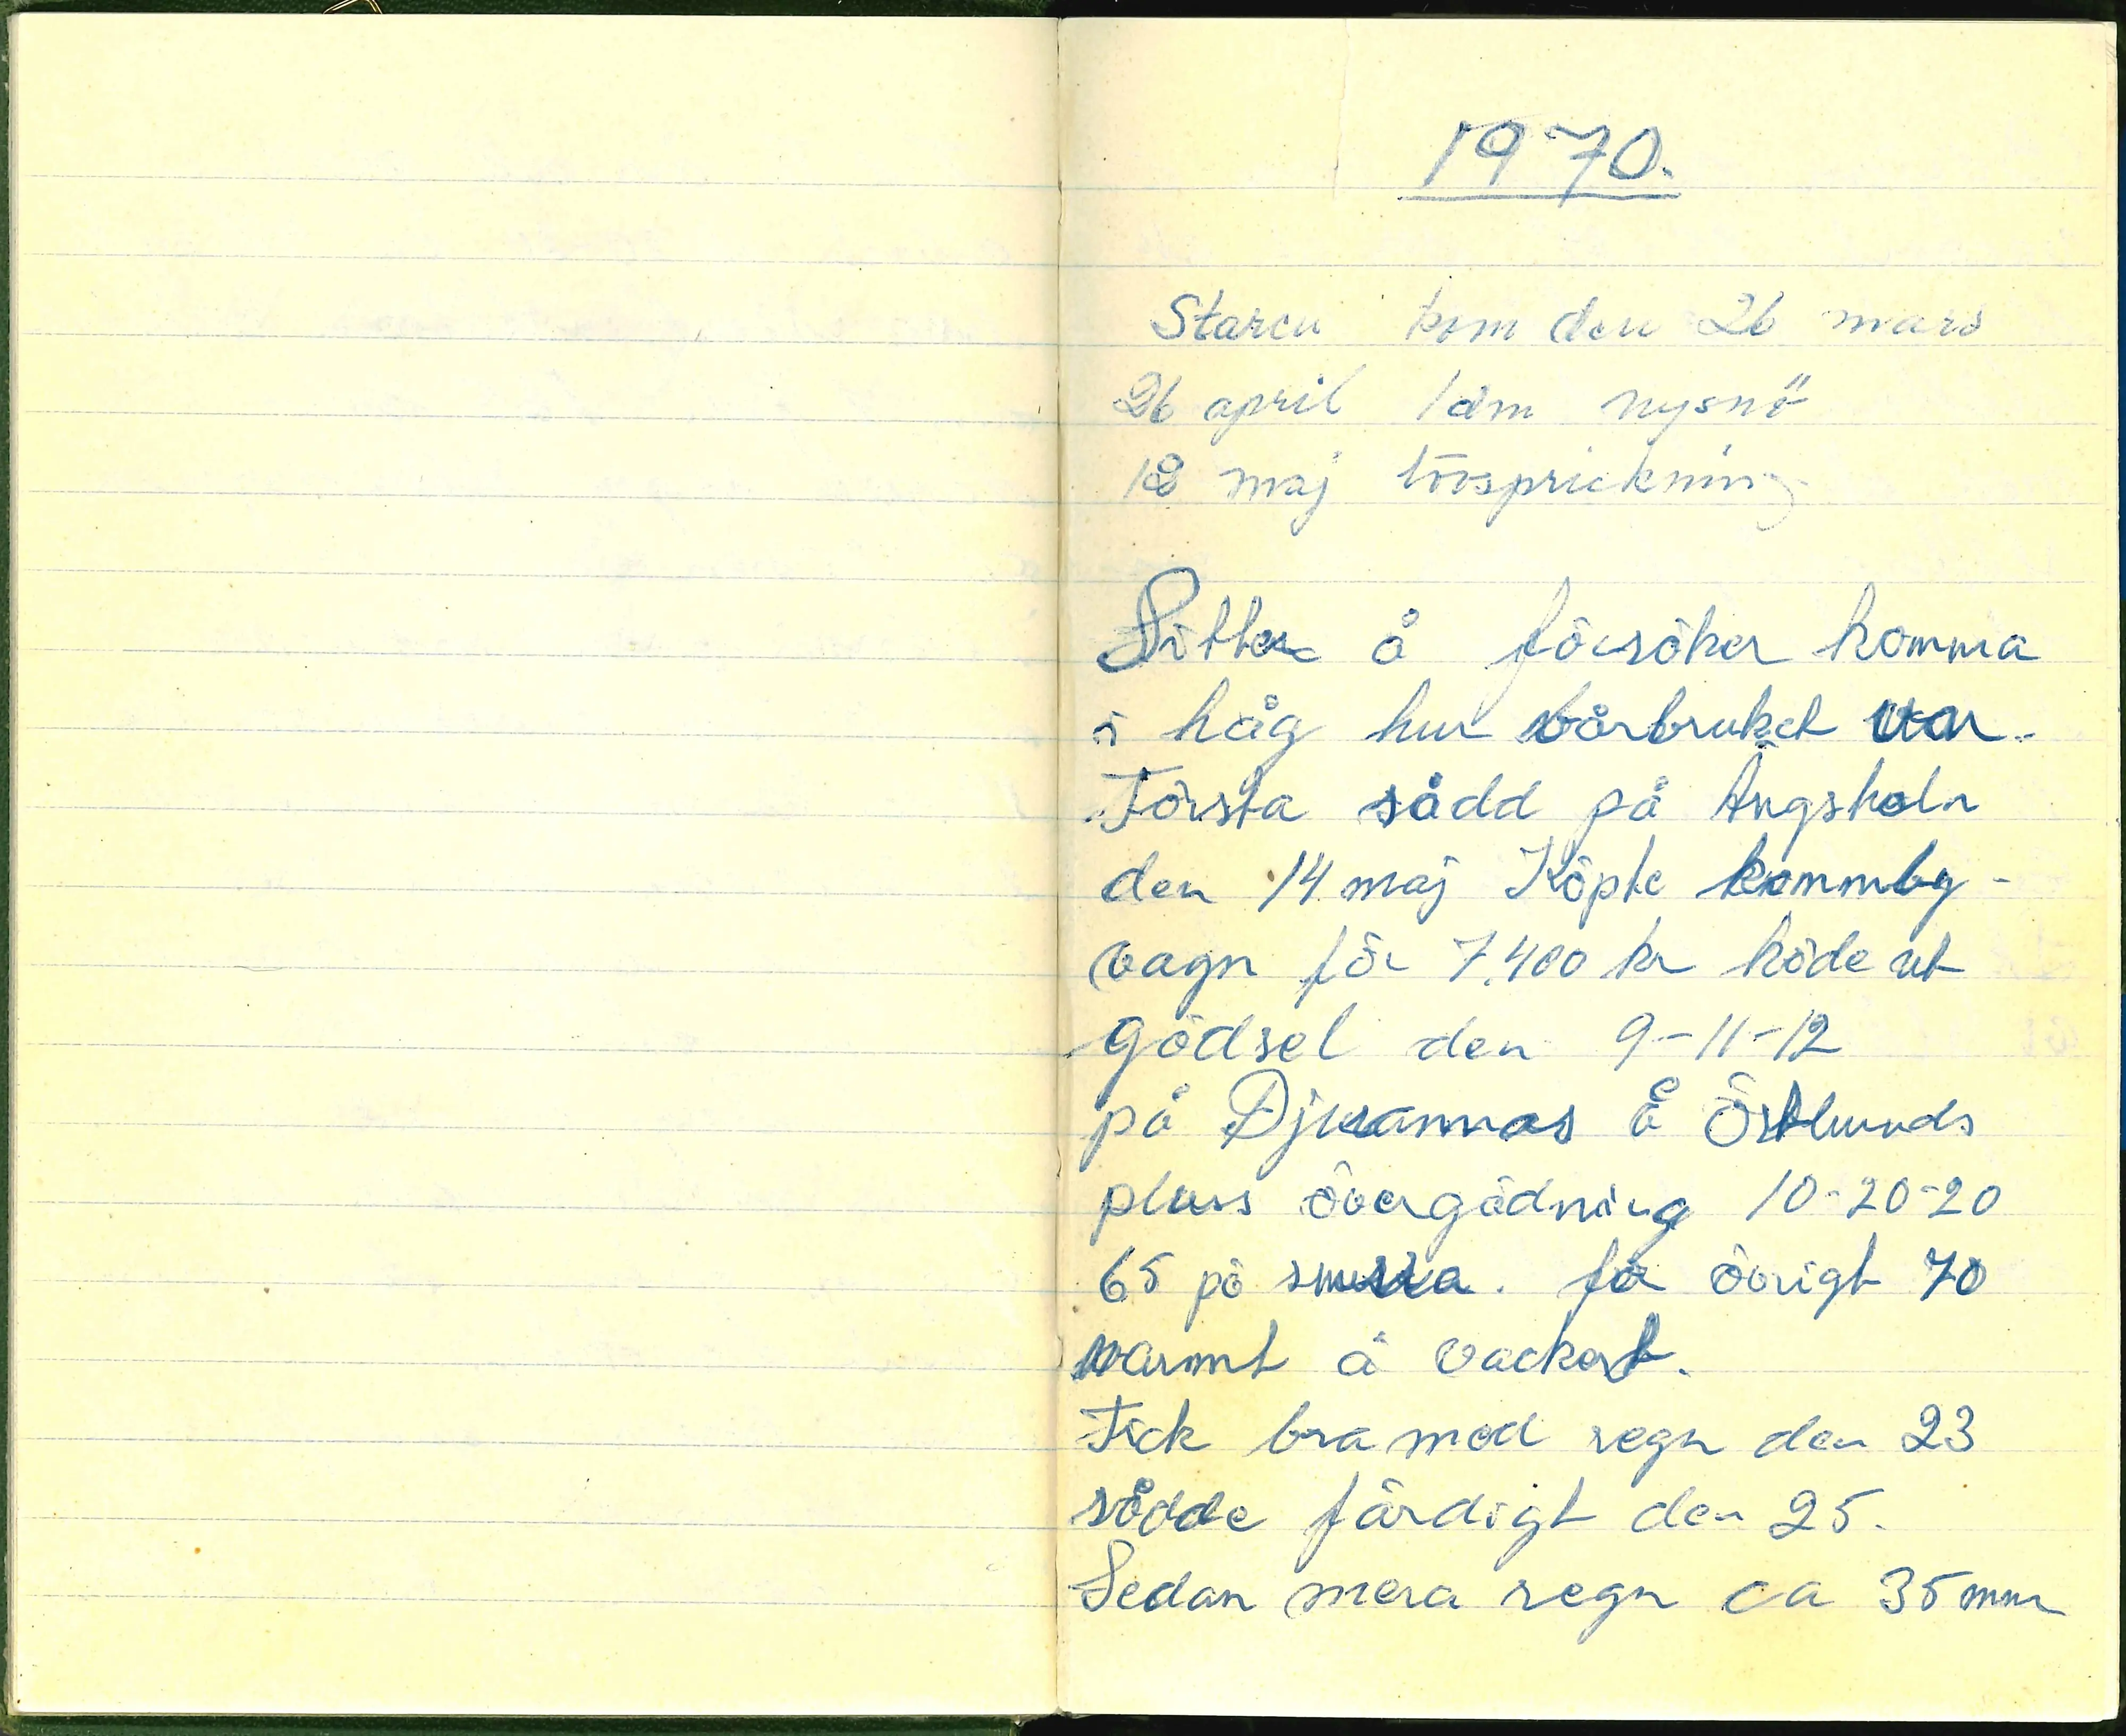 1970.
Staren kom den 26 mars
26 april 1dm nysnö
18 maj lövsprickning
Sitter å försöker komma
i håg hur vårbruket var.
Första sådd på Ängsholn
den 14 maj Köpte kommby-
vagn för 7.400 kr köde ut
gödsel den 9-11-12
på å Östlunds
pluss övergödning 10-20-20
65 på för övrigt 70
varmt å vackert.
Fick bra med regn den 23
sådde färdigt den 25.
Sedan mera regn ca 35mm